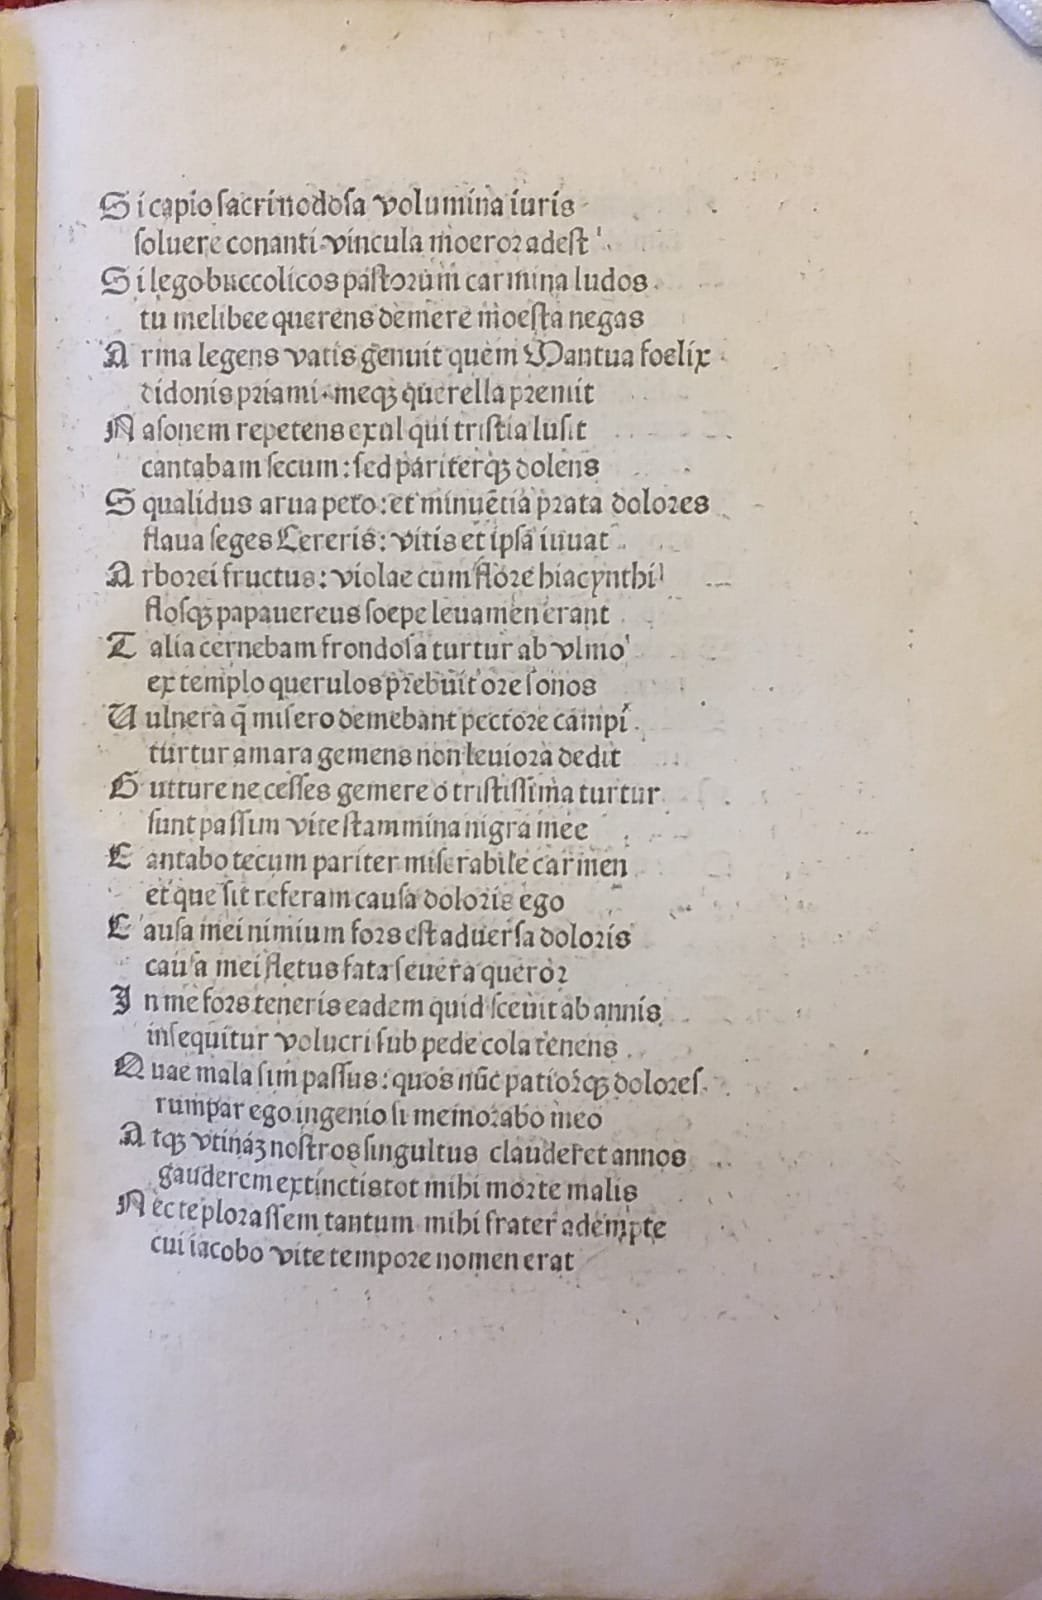 Si capio sacri nodosa volumina iuris
soluere conanti vincula moeror adest
Si lego buccolicos pastorum carmina ludos
tu melibee querens demere moesta negas
Arma legens vatis genuit quem Mantua foelix
didonis priami. meqꝫ querella premit
Nasonem repetens exul qui tristia lusit
cantabam secum: sed pariterqꝫ dolens
Squalidus arua peto: et minuētia prata dolores
flaua seges Cereris: vitis et ipsa iuuat
Arborei fructus: violae cum flore hiacynthi
flosqꝫ papauereus soepe leuamen erant
Talia cernebam frondosa turtur ab vlmo
ex templo querulos prebuit ore sonos
Vulnera q̄ misero demebant pectore campi
turtur amara gemens non leuiora dedit
Gutture ne cesses gemere o tristissima turtur
sunt passim vite stammina nigra mee
Cantabo tecum pariter miserabile carmen
et que sit referam causa doloris ego
Causa mei nimium fors est aduersa doloris
causa mei fletus fata seuera queror
In me fors teneris eadem quid sceuit ab annis
insequitur volucri sub pede cola tenens
Quae mala sim passus: quos nūc patiorqꝫ dolores
rumpar ego ingenio si memorabo meo
Atqꝫ vtináꝫ nostros singultus clauderet annos
gauderem extinctis tot mihi morte malis
Nec te plorassem tantum mihi frater adempte
cui iacobo vite tempore nomen erat